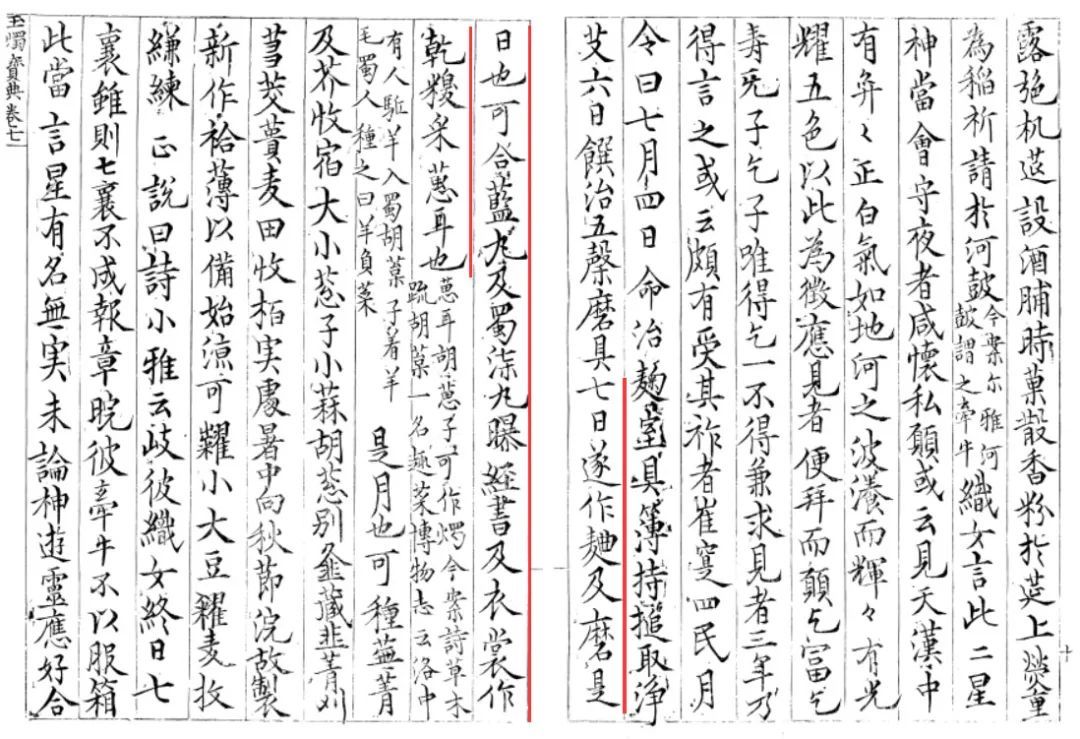 露施机莚設酒脯時菓散香粉於莚上熒重
為稲祈請於河鼓今案尓雅河鼓謂之牽牛織女言此二星
神當會守夜者咸懷私願或云見天漢中
有弈々正白氣如地河之波瀁而輝々有光
耀五色以此為徵應見者便拜而願乞富乞
寿旡子乞子唯得乞一不得兼求見者三年乃
得言之或云頗有受其祚者崔寔四民月
令曰七月四日命治麹室具簿持搥取浄
艾六日饌治五糓磨具七日遂作麹及磨是
十
日也可合藍丸及蜀柒丸曝経書及衣裳作
乾糗采蒠耳也蒠耳胡蒠子可作燭今案詩草木疏胡菓一名趣菜博物志云洛中
有人駈羊入蜀胡菓子着羊毛蜀人種之曰羊負菜是月也可種蕪菁
及芥收宿大小䓗子小蒜胡䓗别䪥藏韭菁刈
蒭茭蕢麦田收柏実處暑中向秋節浣故製
新作袷薄以備始涼可糶小大豆糴麦收
縑練 正說曰詩小雅云歧彼織女終日七
襄雖則七襄不成報章睆彼牽牛不以服箱
此當言星有名無実未論神遊靈應好合
玉燭寶典卷七